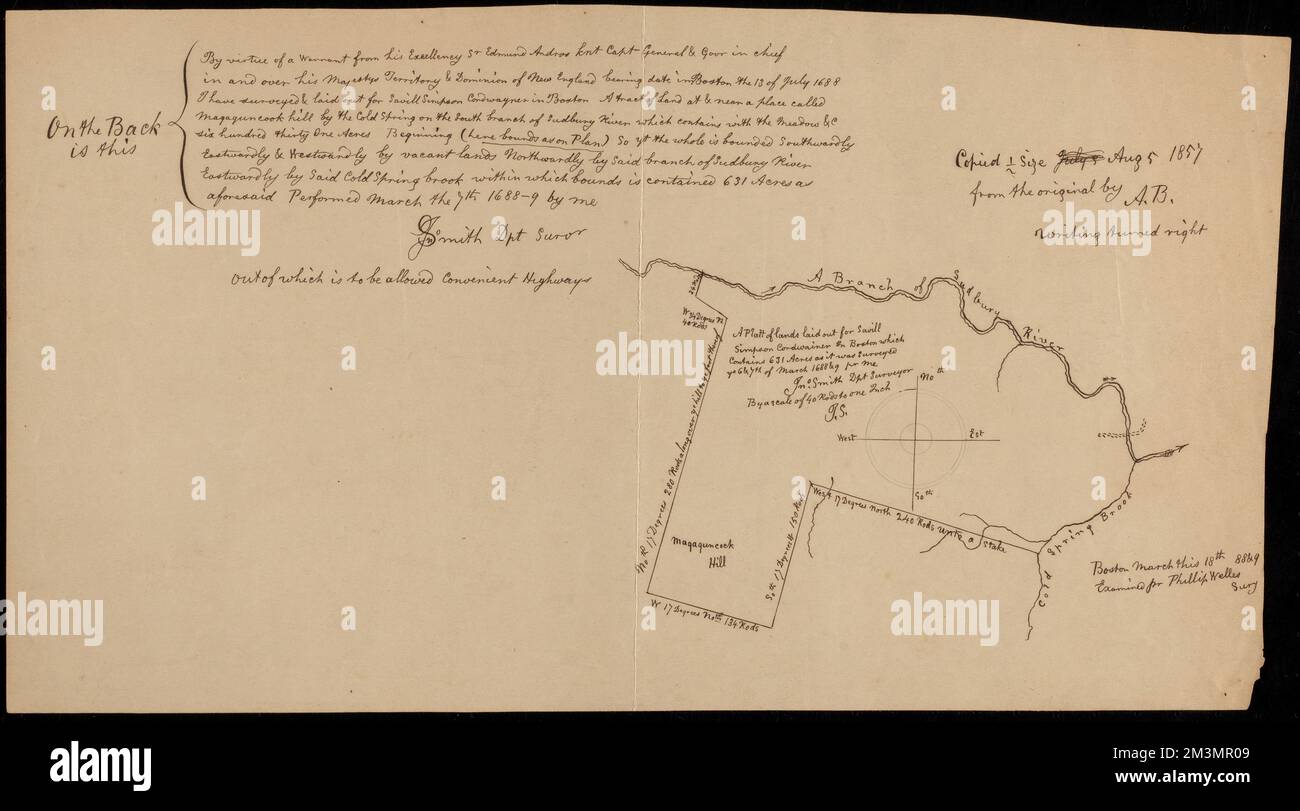 On the Back
is this
By virtue of a Warrant from his Excellency Sr Edmund Andros knt Capt General & Govr in chief
in and over his Majestys Territory & Dominion of New England bearing date in Boston the 13 of July 1688
I have surveyed & laid out for Savill Simpson Cordwayner in Boston A tract of Land at & near a place called
Magaguncook hill by the Cold Spring on the South branch of Sudbury River which contains with the Meadow &c
six hundred thirty One Acres Beginning (here bounds as on Plan) So yt the whole is bounded Southwardly
Eastwardly & Westwardly by vacant lands Northwardly by Said branch of Sudbury River
Eastwardly by Said Cold Spring brook within which bounds is contained 631 Acres as
aforesaid Performed March the 7th 1688-9 by me
Jno Smith Dpt Survr
out of which is to be allowed Convenient Highways
Copied 1/1 Size July 8 Aug 5 1857
from the original by A.B.
writing turned right
A Branch of Sudbury River
W 34 Degrees N
40 Rods
A Platt of lands laid out for Savill
Simpson Cordwainer in Boston which
Contains 631 Acres as it was Surveyed
ye 6 & 7th of March 1688&9 pr me
Jno. Smith Dpt Surveyor
By a scale of 40 Rods to one Inch
J.S.
Noth
West
Est
Soth
Noth 17 Degrees 280 Rods along over ye hill to ye foot thereof
Magaguncook
Hill
W 17 Degrees Noth 134 Rods
Soth 17 Degrees W 150 Rods
West 17 Degrees North 240 Rods Unto a Stake
Cold Spring Brook
Boston March this 18th 88&9
Examined pr Phillip Welles
Surv
alamy
a
Image ID: 2M3MR09
www.alamy.com